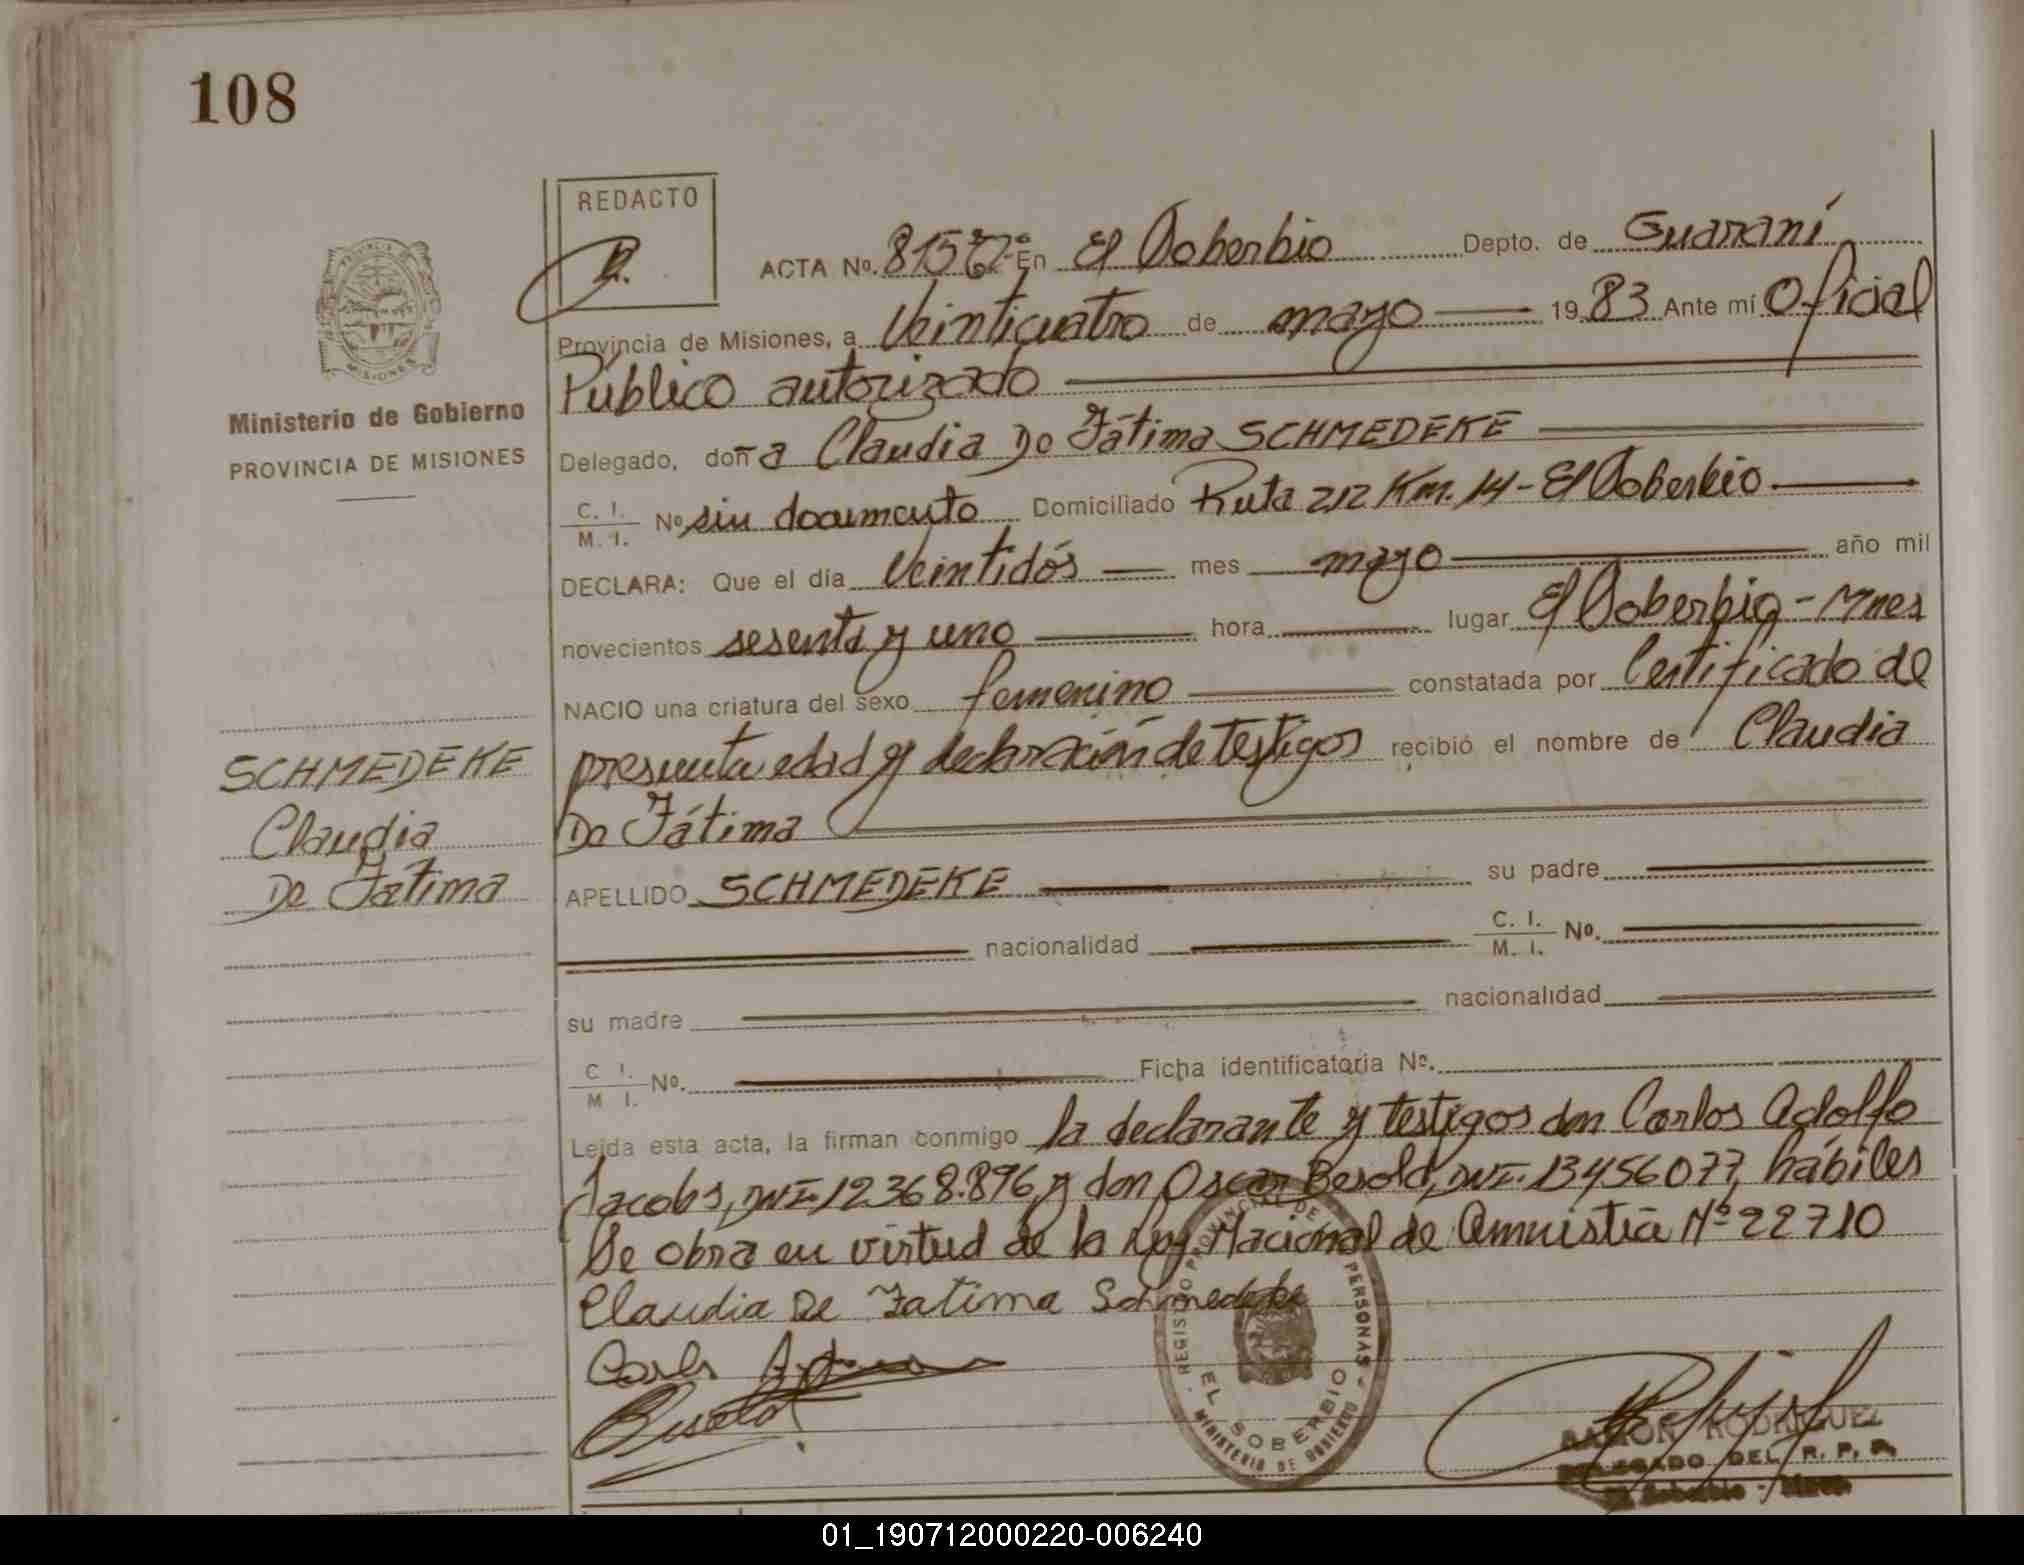 108
REDACTO
R.
ACTA No. En El Soberbio Depto. de Guaraní
Provincia de Misiones, a Veinticuatro de mayo 1983 Ante mí Oficial
Público autorizado
Ministerio de Gobierno
PROVINCIA DE MISIONES
Delegado, doña Claudia De Fátima SCHMEDEKE
C. I.
M. I. No sin documento Domiciliado Ruta 212 Km. 14 - El Soberbio
DECLARA: Que el día Veintidós mes mayo año mil
novecientos sesenta y uno hora lugar El Soberbio - Mnes
NACIO una criatura del sexo femenino constatada por Certificado de
presunta edad y declaración de testigos recibió el nombre de Claudia
De Fátima
SCHMEDEKE
Claudia
De Fatima
APELLIDO SCHMEDEKE su padre
nacionalidad C. I.
M. I. No.
su madre nacionalidad
C I.
M I. No. Ficha identificatoria No.
Leida esta acta, la firman conmigo la declarante y testigos don Carlos Adolfo
Jacobs, DNI. 12368.896, y don Oscar Besold, DNI. 13456077, hábiles
Se obra en virtud de la Ley Nacional de Amnistía Nº 22710
Claudia De Fatima Schmedeke
Carlos
REGISTRO PROVINCIAL DE PERSONAS
EL SOBERBIO
MINISTERIO DE GOBIERNO
RAMON RODRIGUEZ
DELEGADO DEL R. P. P.
El Soberbio - Mnes
01_190712000220-006240